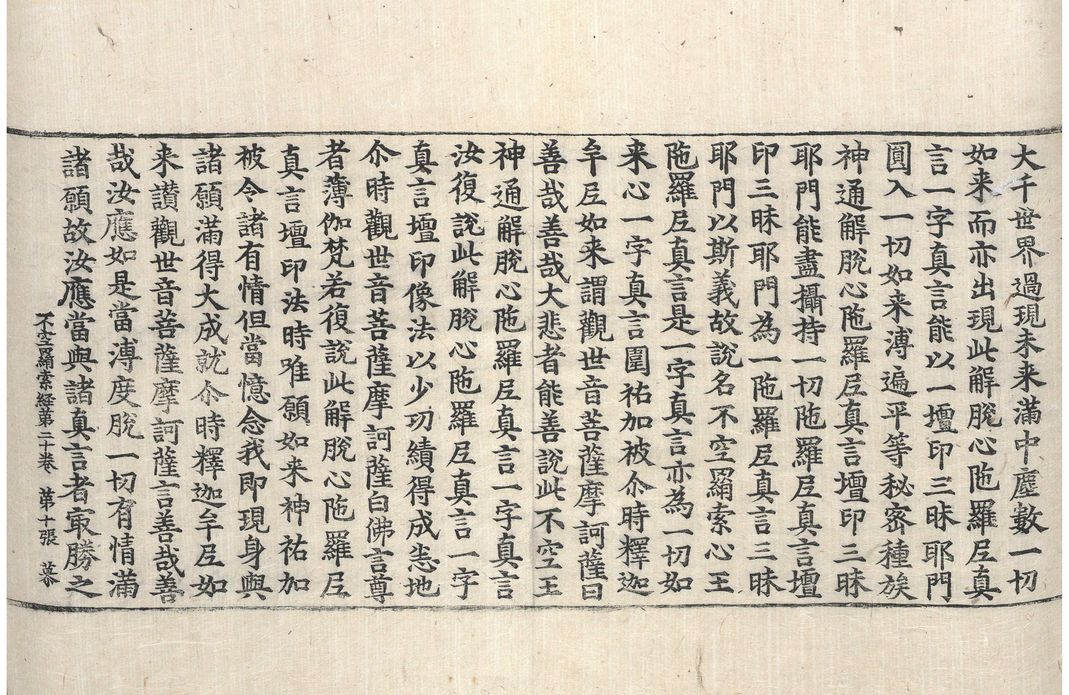 大千世界過現未来滿中塵數一切
如来而亦出現此解脫心陁羅𡰱真
言一字真言能以一壇印三昧耶門
圓入一切如来溥遍平等秘密種族
神通解脫心陁羅𡰱真言壇印三昧
耶門能盡攝持一切陁羅𡰱真言壇
印三昧耶門為一陁羅𡰱真言三昧
耶門以斯義故說名不空羂索心王
陁羅𡰱真言是一字真言亦為一切如
来心一字真言圍祐加被尒時釋迦
牟𡰱如来謂觀世音菩薩摩訶薩曰
善哉善哉大悲者能善說此不空王
神通解脫心陁羅𡰱真言一字真言
汝復說此解脫心陁羅𡰱真言一字
真言壇印像法以少功績得成悉地
尒時觀世音菩薩摩訶薩白佛言尊
者薄伽梵若復說此解脫心陁羅𡰱
真言壇印法時唯願如来神祐加
被令諸有情但當憶念我即現身與
諸願滿得大成就尒時釋迦牟𡰱如
来讚觀世音菩薩摩訶薩言善哉善
哉汝應如是當溥度脫一切有情滿
諸願故汝應當與諸真言者㝡勝之
不空羂索経第二十卷 第十張 慕